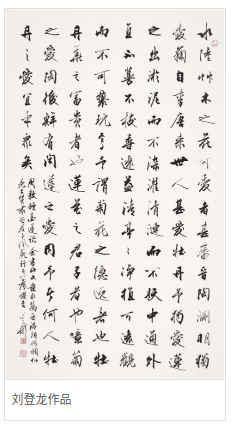 水陸艸木之花可愛者甚蕃晉陶淵明獨
愛菊自李唐來世人甚愛牡丹予獨愛蓮
之出淤泥而不染濯清漣而不妖中通外
直不蔓不枝香遠益清亭亭淨植可遠觀
而不可褻玩焉予謂菊花之隱逸者也牡
丹花之富貴者也蓮花之君子者也噫菊
之愛陶後鮮有聞蓮之愛同予者何人牡
丹之愛宜乎眾矣
周敦頤愛蓮說
刘登龙作品